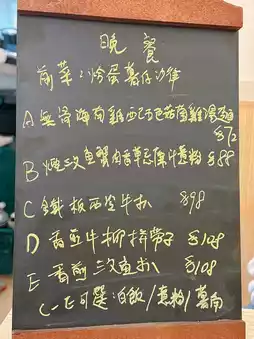 晚餐
前菜：炒蛋薯仔沙律
A 無骨海南雞配巴菇菌雞湯麵
$72
B 煙三文魚蟹肉香草忌廉汁意粉 $88
C 鐵板西冷牛扒 $98
D 香煎牛柳拼帶子 $108
E 香煎三文魚扒 $108
C-E可選白飯/意粉/薯角